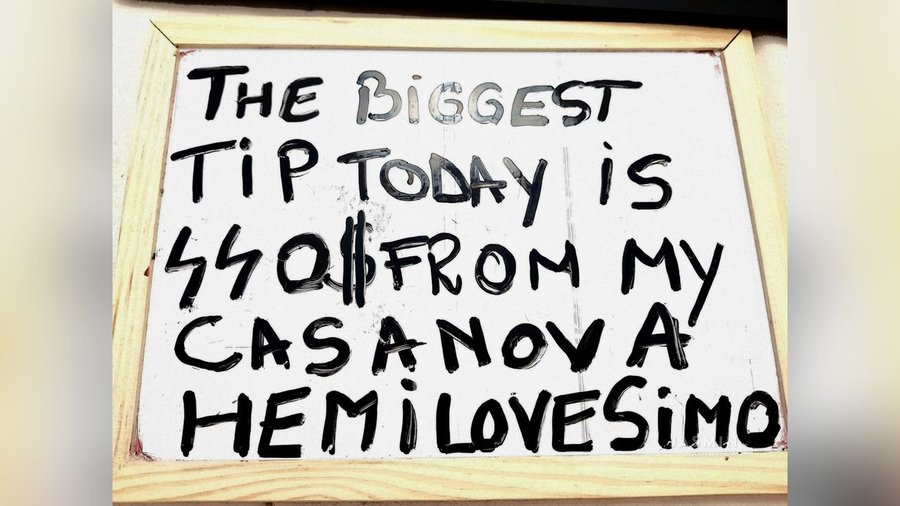 THE BIGGEST
TIP TODAY IS
550$ FROM MY
CASANOVA
HEMILOVESIMO